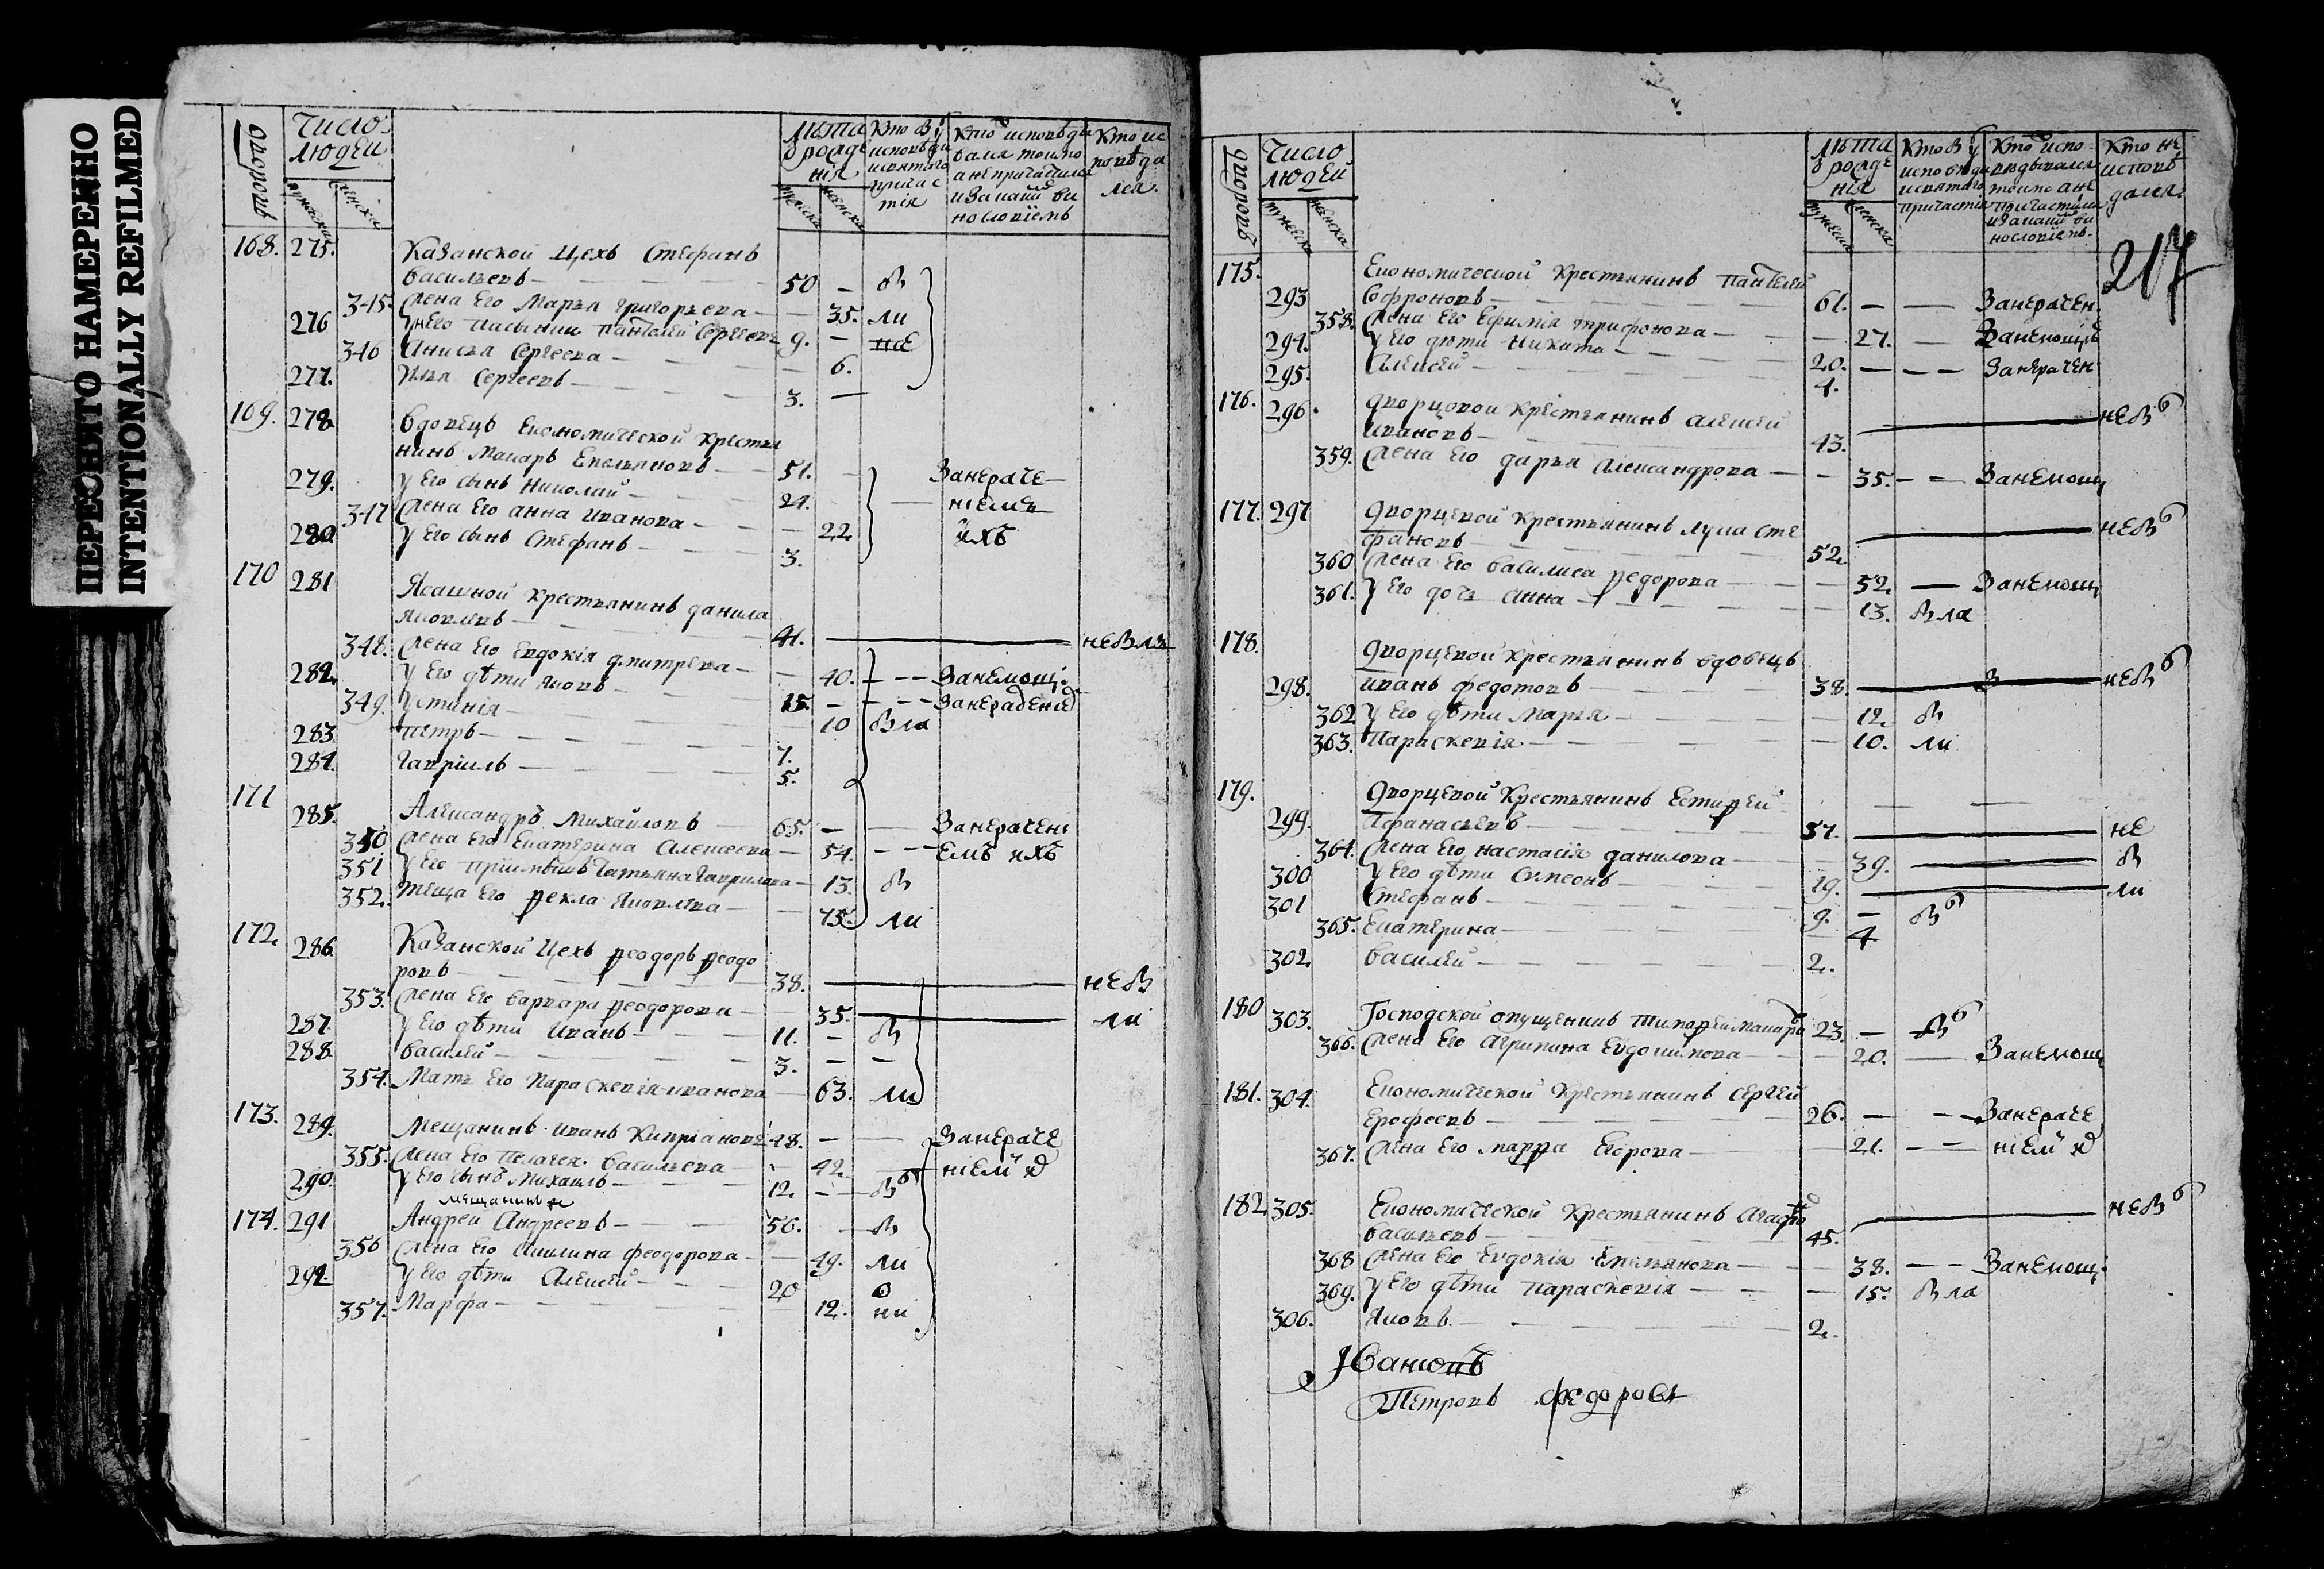 ПЕРЕСНЯТО НАМЕРЕННО
INTENTIONALLY REFILMED
дворовъ
Число
людей
мужеска
женска
Лѣта
ѿ рожде
нія
мужеска
женска
Кто бы
исповѣди
и святаго
причас
тія
Кто исповѣды
вался токмо
а не причастился
и за какимъ ви
нословіемъ
Кто не
исповѣда
лся.
168. 275. Казанской Цехъ Стефанъ
Васильевъ — 50 — бы
345. Жена Его Марья Григорьева — 35. ли
276 У него питомцы Пантелей Сергеевъ 9. —
346 Анисья Сергеева — 6.
277. Илья Сергеевъ — 3. —
169. 278. Вдовецъ Економической крестья
нинъ Макаръ Емельяновъ — 51. — Занераче
279. У Его сынъ Николай — 24. — ніемъ
347 Жена Его Анна Иванова — 22 ихъ
280. У Его сынъ Стефанъ — 3.
170 281 Ясашной крестьянинъ Данила
Яковлевъ — 41. — не былъ
348. Жена Его Евдокія Дмитрева — 40. — Занемощ:
282. У Его дѣти Яковъ — 15. — Занераденіе
349. Устинія — 10 была
283 Петръ — 7.
284. Гавріилъ — 5.
171 285. Александръ Михайловъ 65. — Занерачені
350 Жена Его Екатерина Алексеева — 54. — Емъ ихъ
351 У Его пріимышъ Татьяна Гаврилова — 13. бы
352. Теща Его Ѳекла Яковлева — 75. ли
172. 286. Казанской Цехъ Ѳеодоръ Ѳеодо
ровъ — 38. — не бы
353. Жена Его Варвара Ѳеодорова — 35. — ли
287. У Его дѣти Иванъ — 11. — бы
288. Василей — 3. —
354. Мать Его Параскевія Иванова — 63. ли
173. 289. Мещанинъ Иванъ Кипріановъ 48. — Занераче
355. Жена Его Пелагея Васильева — 42. — ніемъ
290. У Его сынъ Михаилъ — 12. — бы
мещанинъ же
174. 291 Андрей Андреевъ — 56. — бы
356 Жена Его Акилина Феодорова — 49. ли
292. У Его дѣти Алексей — 20
357. Марфа — 12.
217
дворовъ
Число
людей
мужеска
женска
Лѣта
ѿ рожде
нія
мужеска
женска
Кто бы
исповѣди
и святаго
причастія
Кто испо
вѣдывался
токмо а не
причастился
и за какимъ ви
нословіемъ.
Кто не
исповѣ
дался.
175. Економической Крестьянинъ Пантелей
293 Софроновъ — 61. — Занерачен.
358. Жена Его Ефимія Трифонова — 27. — Занемощію
294. У Его дѣти Никита — 20. — Занерачен
295. Алексей — 4.
176. 296. Дворцовой Крестьянинъ Алексей
Ивановъ — 43. — не бы
359. Жена Его Дарья Александрова — 35. — Занемощ
177. 297 Дворцовой Крестьянинъ Лука Сте
фановъ — 52. — не бы
360 Жена Его Василиса Ѳедорова — 52. — Занемощ
361. У Его дочь Анна — 13. была
178. Дворцовой крестьянинъ вдовецъ
298. Иванъ Федотовъ — 38 — не бы
362 У Его дѣти Марья — 12. бы
363. Параскевія — 10. ли
179. Дворцовой Крестьянинъ Естиѳей
299. Афанасьевъ — 57. — не
364. Жена Его Настасія Данилова — 39. — бы
300 У Его дѣти Симеонъ — 19. — ли
301 Стефанъ — 9. — бы
365. Екатерина — 4
302. Василей — 2.
180 303. Господской опущеникъ Тимоѳей Макаро 23. — бы
366. Жена Его Агрипина Евдокимова — 20. — Занемощ
181. 304. Економической Крестьянинъ Сергей
Ерофеевъ — 26. — Занераче
367. Жена Его Марѳа Егорова — 21. — ніемъ
182. 305. Економической Крестьянинъ Агафо
Васильевъ — 45. — не бы
368 Жена Его Евдокія Емельянова — 38. — Занемощ:
369. У Его дѣти Параскевія — 15. была
306. Яковъ — 2.
Петровъ Федоровъ